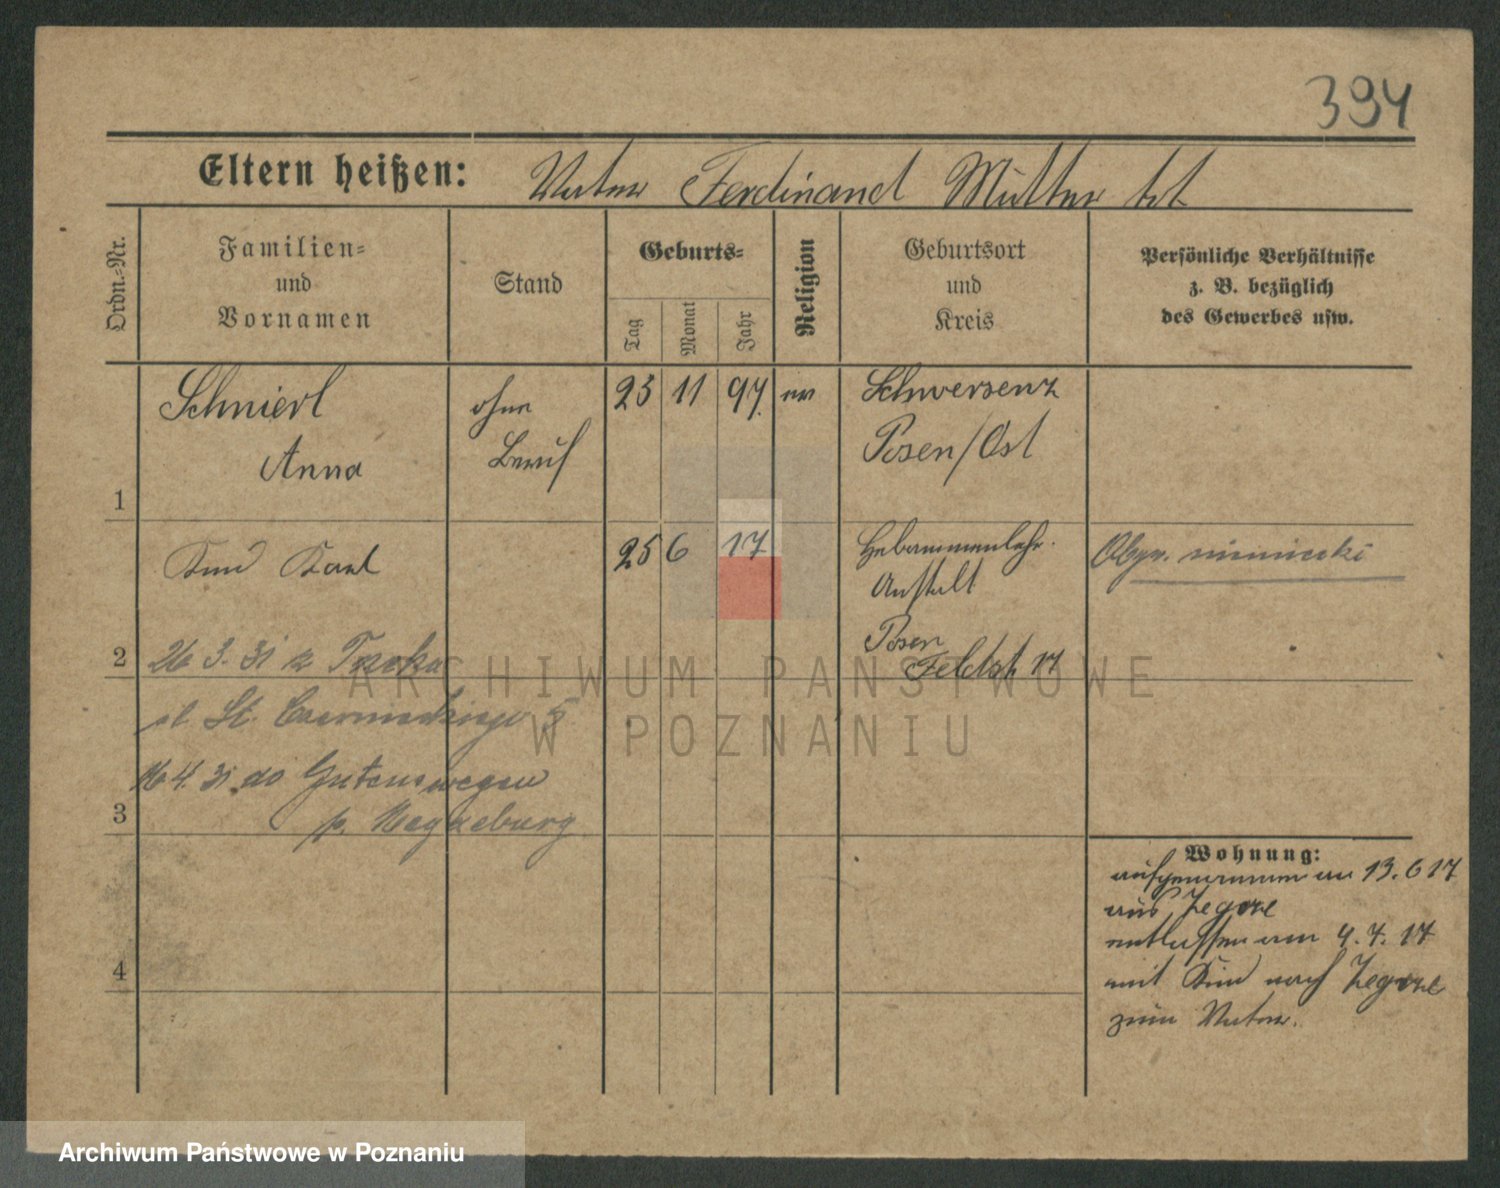 394
Eltern heißen: Vater Ferdinand Mutter tot
Ordn.-Nr.
Familien- und Vornamen
Stand
Geburts-
Tag
Monat
Jahr
Religion
Geburtsort und Kreis
Persönliche Verhältnisse z. B. bezüglich des Gewerbes usw.
1
Schnierl
Anna
ohne
Beruf
23 11 97
ev
Schwersenz
Posen/Ost
2
Kind Karl
25 6 17
Hebammenlehr.
Anstalt
Posen
Feldstr 17
Obyw. niemiecki
26 3. 31 z
ul. St. Czarnieckiego 5
3
16 4. 31 do Gutenswegen
p. Magdeburg
4
Wohnung:
aufgenommen am 13. 6 17
aus Zegrze
entlassen am 4. 7. 17
mit Kind nach Zegrze
zum Vater.
ARCHIWUM PAŃSTWOWE
W POZNANIU
Archiwum Państwowe w Poznaniu